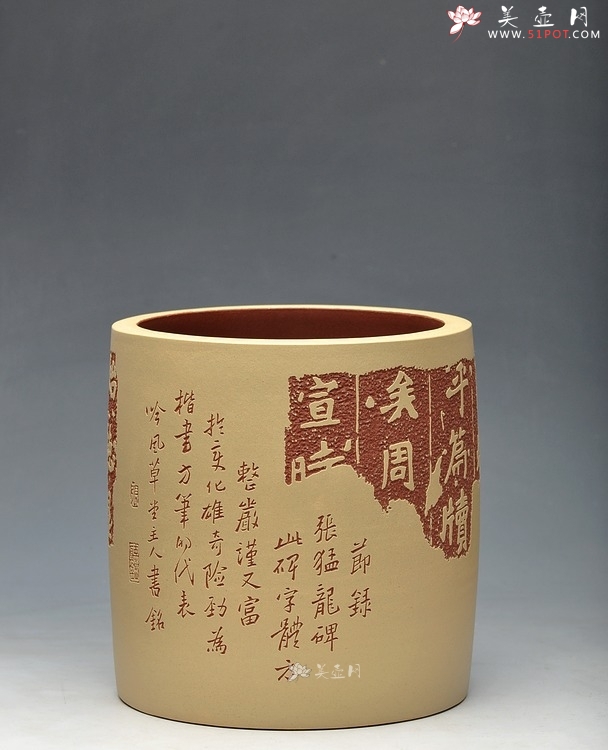 美壶网
WWW.51POT.COM
平篇牘
矣周
宣時
節錄
張猛龍碑
此碑字體方
整嚴謹又富
於变化雄奇险勁為
楷書方筆的代表
吟風草堂主人書銘
美壶网